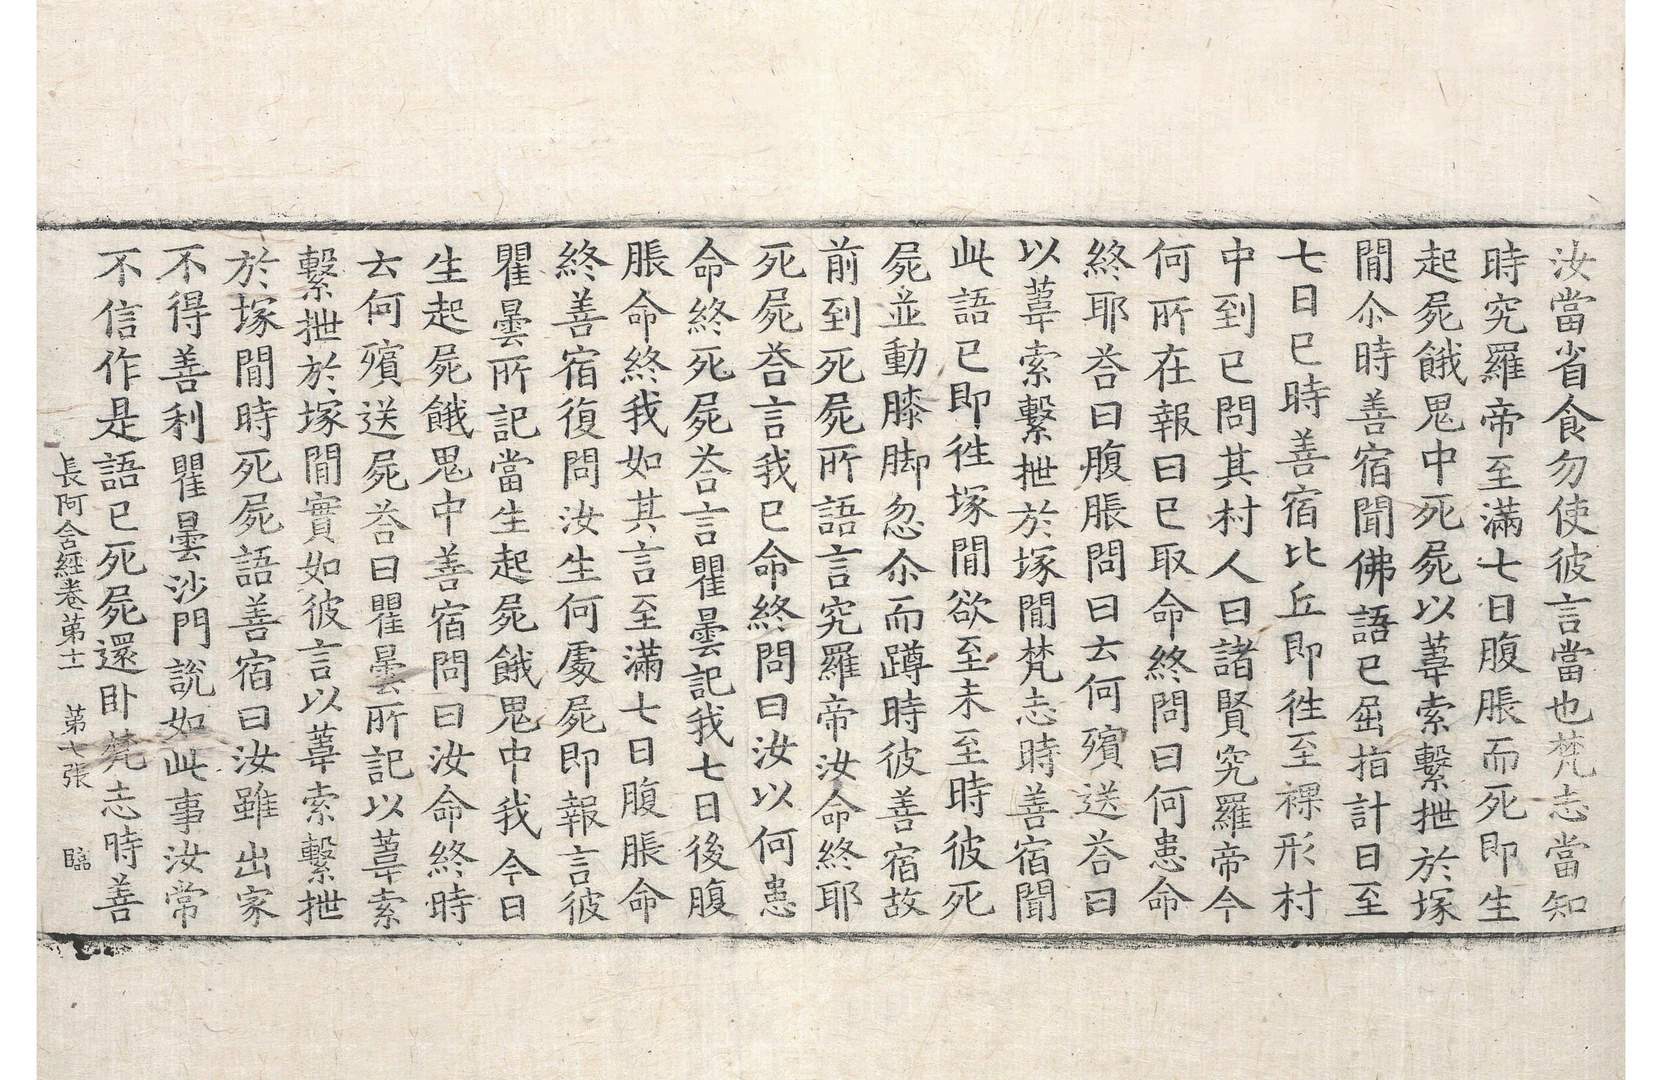 汝當省食勿使彼言當也梵志當知
時究羅帝至滿七日腹脹而死即生
起屍餓鬼中死屍以葦索繫抴於塚
閒尒時善宿聞佛語已屈指計日至
七日已時善宿比丘即往至裸形村
中到已問其村人曰諸賢究羅帝今
何所在報曰已取命終問曰何患命
終耶荅曰腹脹問曰云何殯送荅曰
以葦索繫抴於塚閒梵志時善宿聞
此語已即往塚閒欲至未至時彼死
屍並動膝脚忽尒而蹲時彼善宿故
前到死屍所語言究羅帝汝命終耶
死屍荅言我已命終問曰汝以何患
命終死屍荅言瞿曇記我七日後腹
脹命終我如其言至滿七日腹脹命
終善宿復問汝生何處屍即報言彼
瞿曇所記當生起屍餓鬼中我今日
生起屍餓鬼中善宿問曰汝命終時
云何殯送屍荅曰瞿曇所記以葦索
繫抴於塚閒實如彼言以葦索繫抴
於塚閒時死屍語善宿曰汝雖出家
不得善利瞿曇沙門說如此事汝常
不信作是語已死屍還臥梵志時善
長阿含經卷苐十一 苐七張 臨